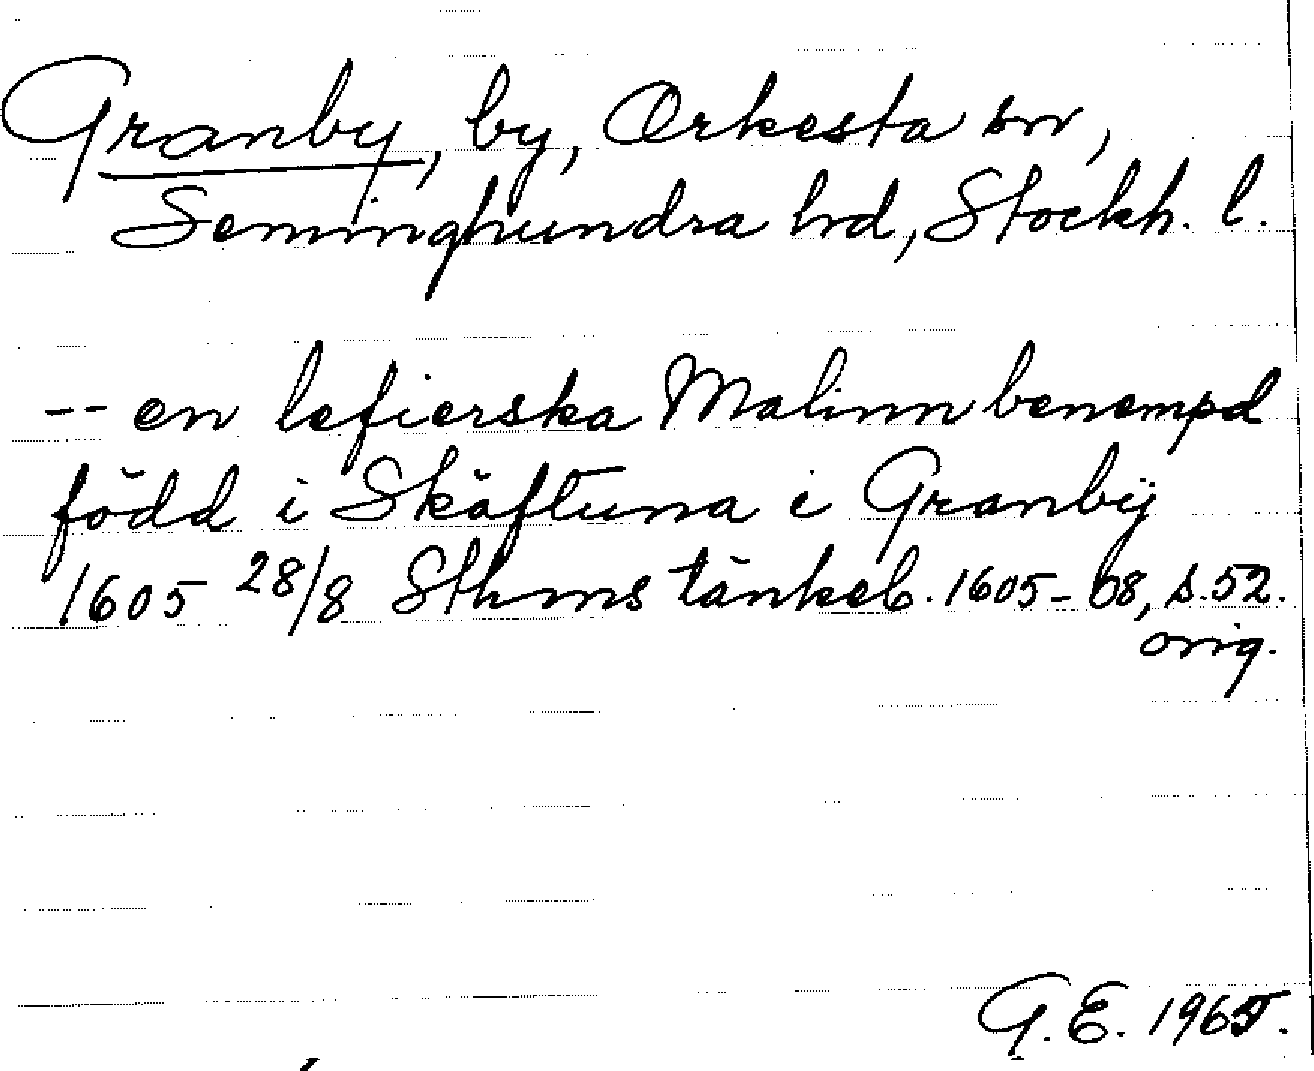 Granby, by, Orkesta sn,
Seminghundra hrd, Stockh. l.
-- en lefierska Malinn benempd
född i Skäftuna i Granbÿ
1605 28/8 Sthms tänkeb. 1605-08, s. 52.
orig.
G.E. 1965.